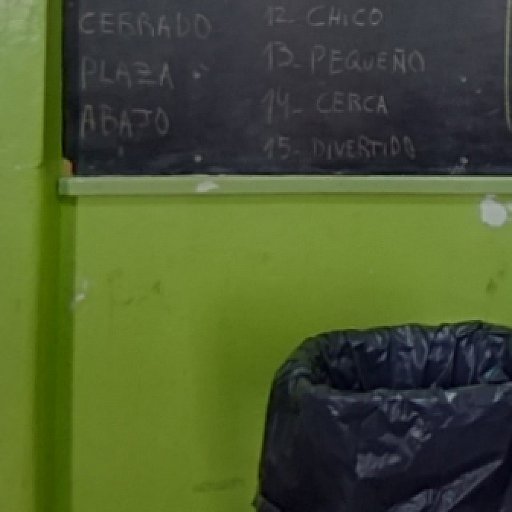 CERRADO
PLAZA
ABAJO
12- CHICO
13- PEQUEÑO
14- CERCA
15- DIVERTIDO